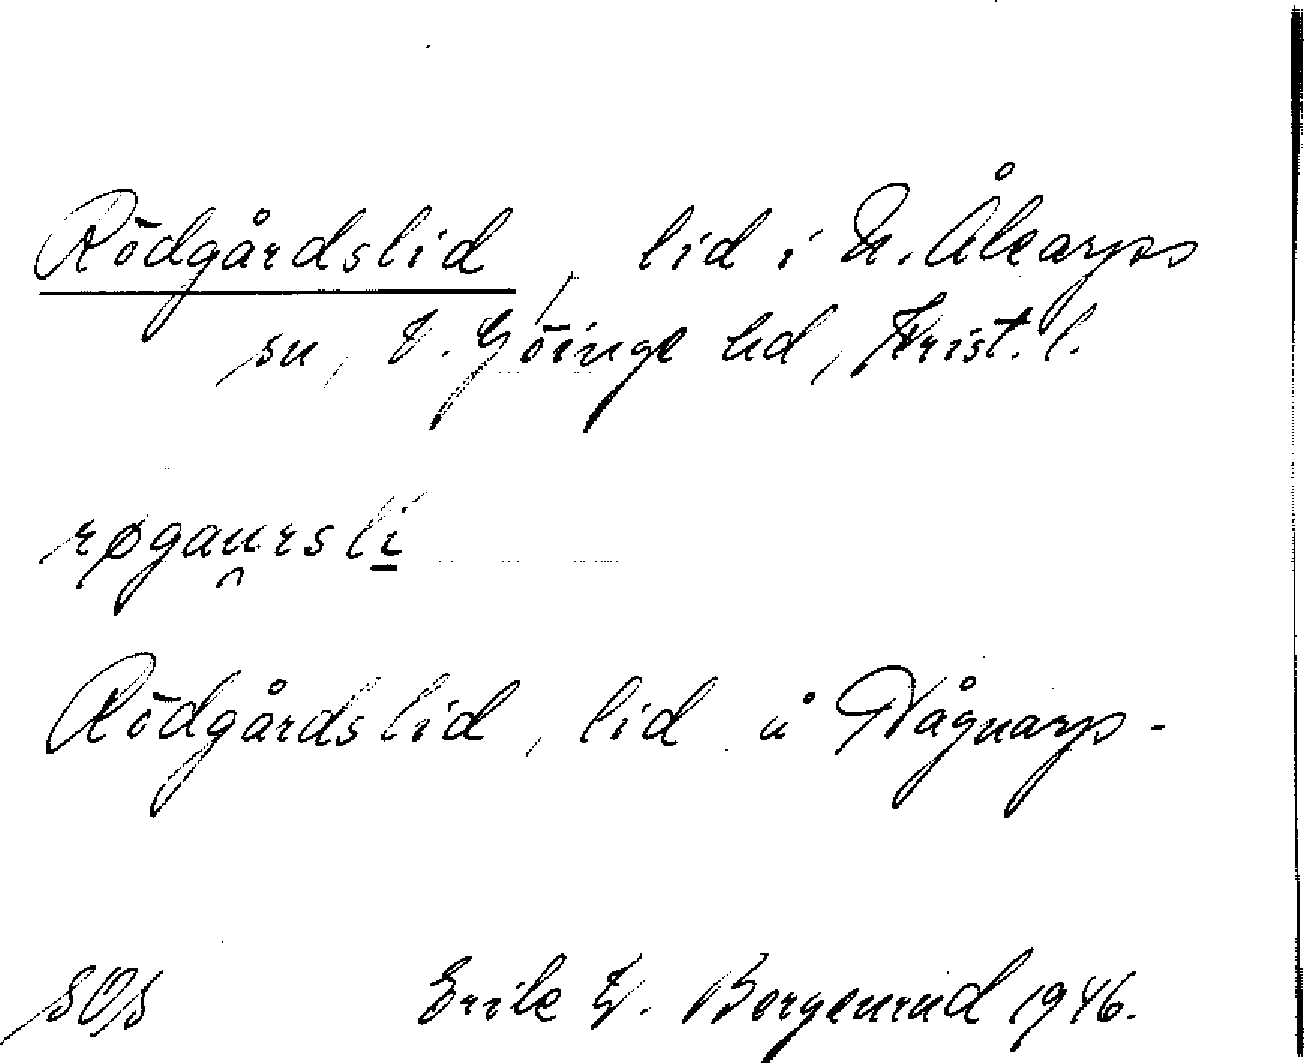 Rödgårdslid, lid i N. Åkarps
sn, V. Göinge hd, Krist. l.
røgau̯rsli
Rödgårdslid, lid å Vågnarp-
SOS Erik W. Borgenrud 1946.